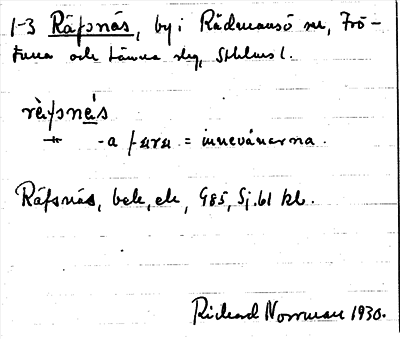 1-3 Räfsnäs, by i Rådmansö sn, Frö-
tuna och Länna slg, Sthlms l.
rä̀fsnäs
-a = innevånarna.
Räfsnäs, bek, ek, G85, Sj. 61 kl.
Richard Norrman 1930.